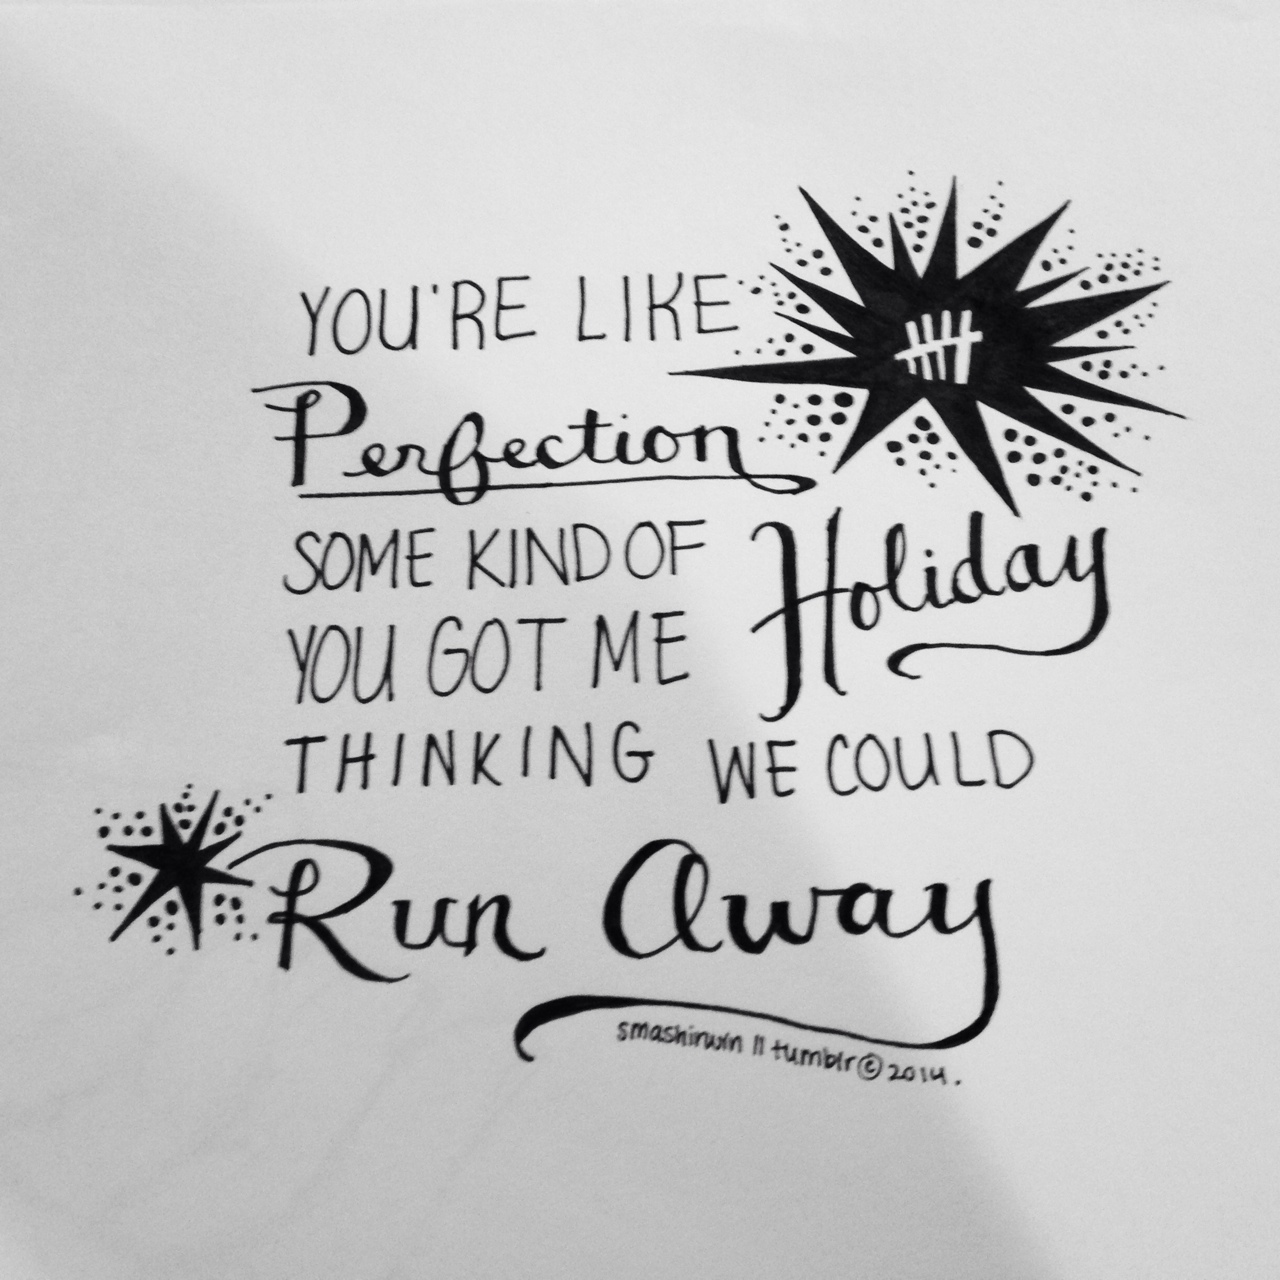 YOU'RE LIKE
Perfection
SOME KIND OF Holiday
YOU GOT ME
THINKING WE COULD
Run Away
smashirwin || tumblr © 2014.